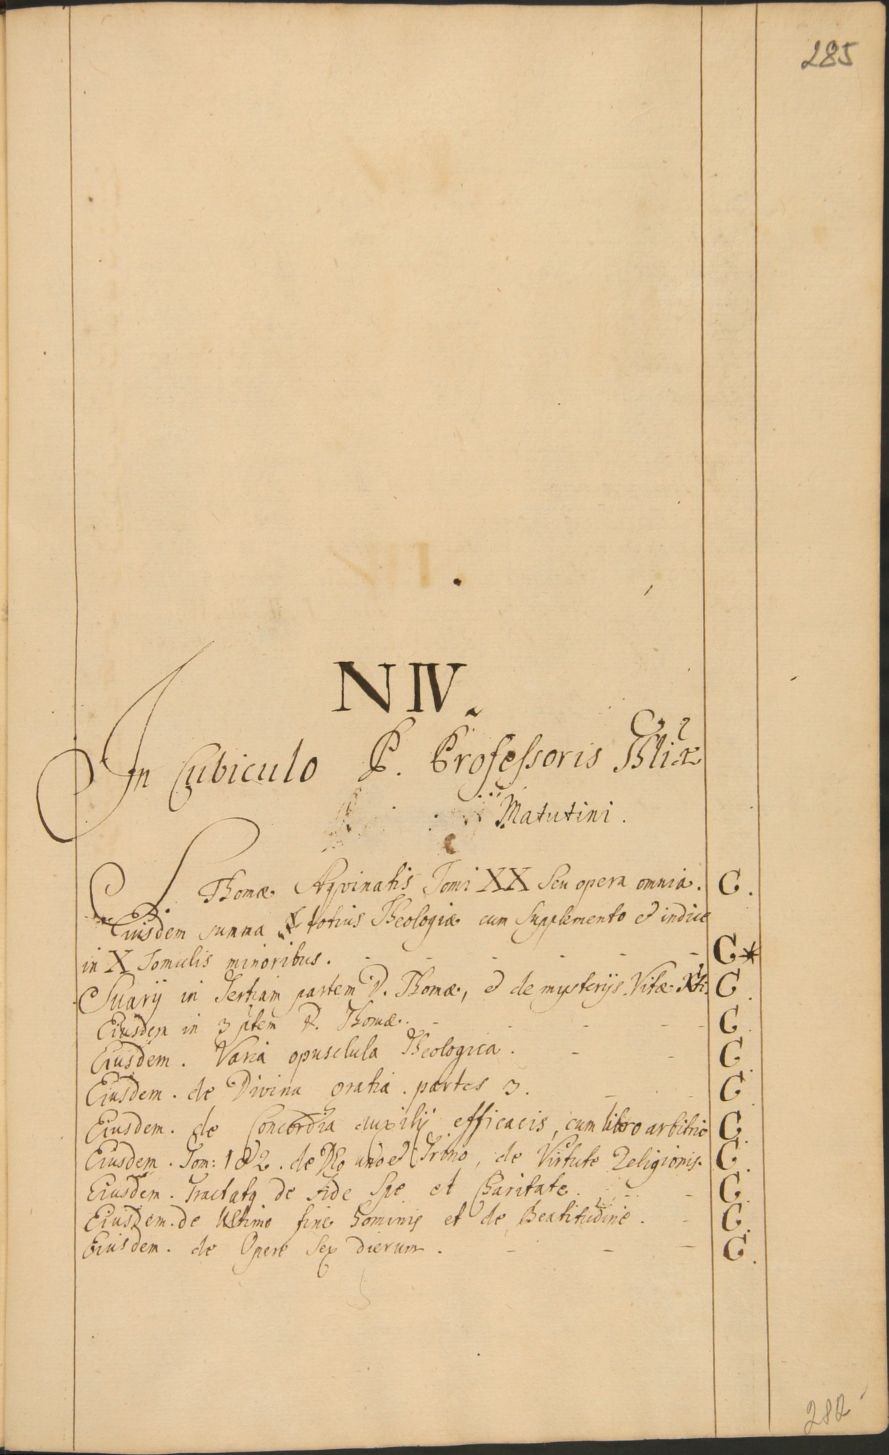 285
N IV.
In Cubiculo P. Professoris
Matutini.
S. Thomæ Aqvinatis Tomi XX Seu opera omnia. C.
Eiusdem summa totius Theologiæ cum Supplemento et indice
in X Tomulis minoribus. - - - - - C*
Suarij in Tertiam partem D. Thomæ, et de mysterijs Vitæ Xti. C
Eiusdem in 3 ptem D. Thomæ. - - - - C
Eiusdem. Varia opuscula Theologica. - - C
Eiusdem. de Divina gratia. partes 3. - - C
Eiusdem. de Concordia auxilij efficacis, cum libro arbitrio C
Eiusdem. Tom: 1 & 2. de Deo uno et Trino, de Virtute Religionis. C
Eiusdem. Tractatq de Fide Spe et Charitate. - C
Eiusdem. de Ultimo fine hominis et de Beatitudine. - C
Eiusdem. de Opere Sex dierum. - - - C.
282